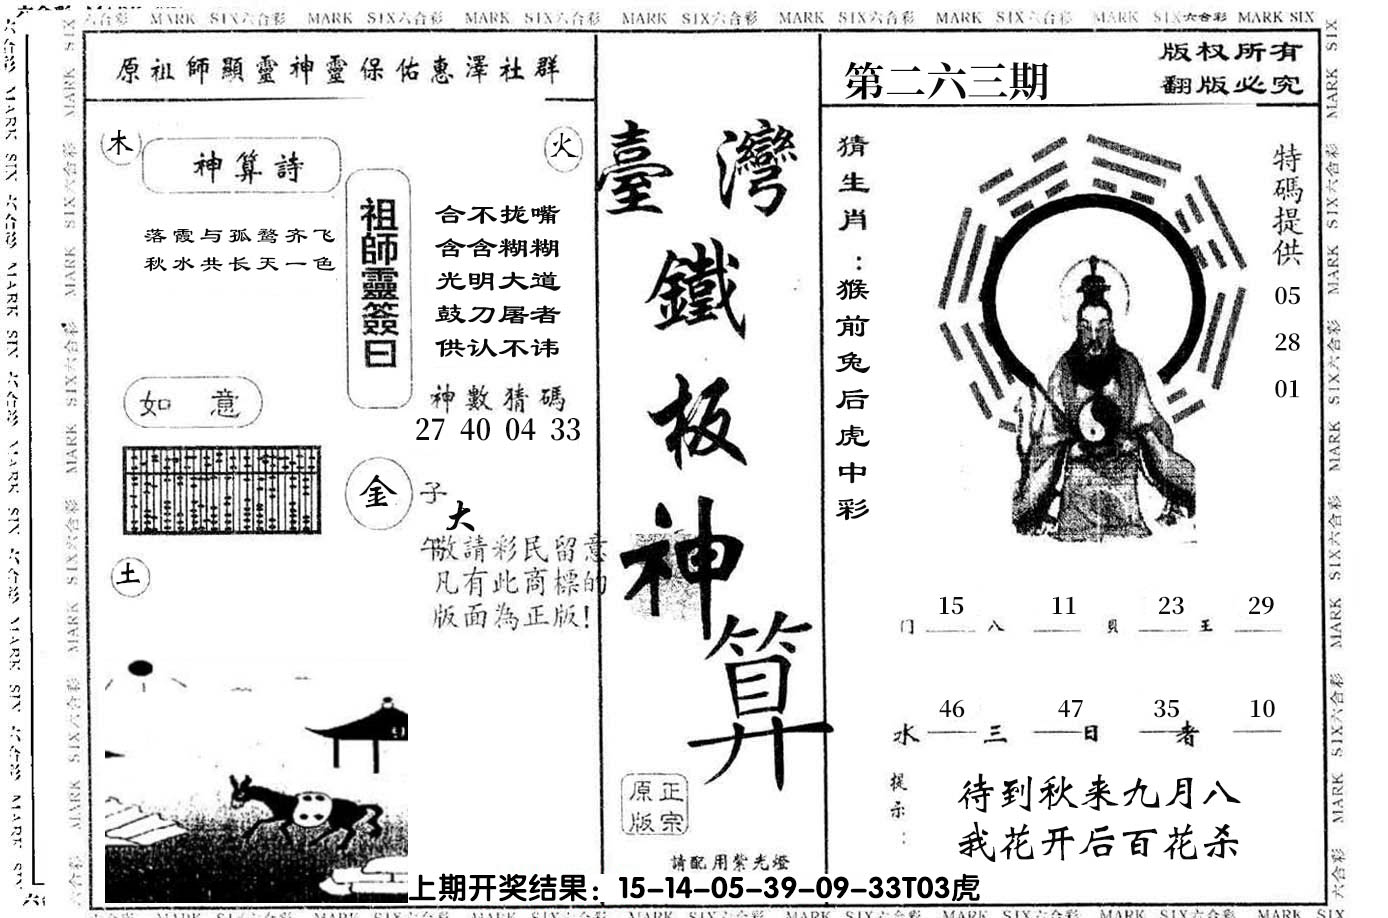 六合彩 MARK SIX六合彩 MARK SIX六合彩 MARK SIX六合彩 MARK SIX六合彩 MARK SIX六合彩 MARK SIX六合彩 MARK SIX六合彩 MARK SIX
原祖師顯靈神靈保佑惠澤社群
木
神算詩
火
落霞与孤鹜齐飞
秋水共长天一色
祖師靈簽曰
合不拢嘴
含含糊糊
光明大道
鼓刀屠者
供认不讳
神數猜碼
27 40 04 33
如意
金
子
大
午
敬請彩民留意
凡有此商標的
版面為正版!
土
臺灣
鐵
板
神
算
正宗
原版
請配用紫光燈
第二六三期
版权所有
翻版必究
猜生肖:猴前兔后虎中彩
特碼提供
05
28
01
15 11 23 29
门 八 貝 王
46 47 35 10
水 三 日 者
提示:
待到秋来九月八
我花开后百花杀
上期开奖结果：15-14-05-39-09-33T03虎